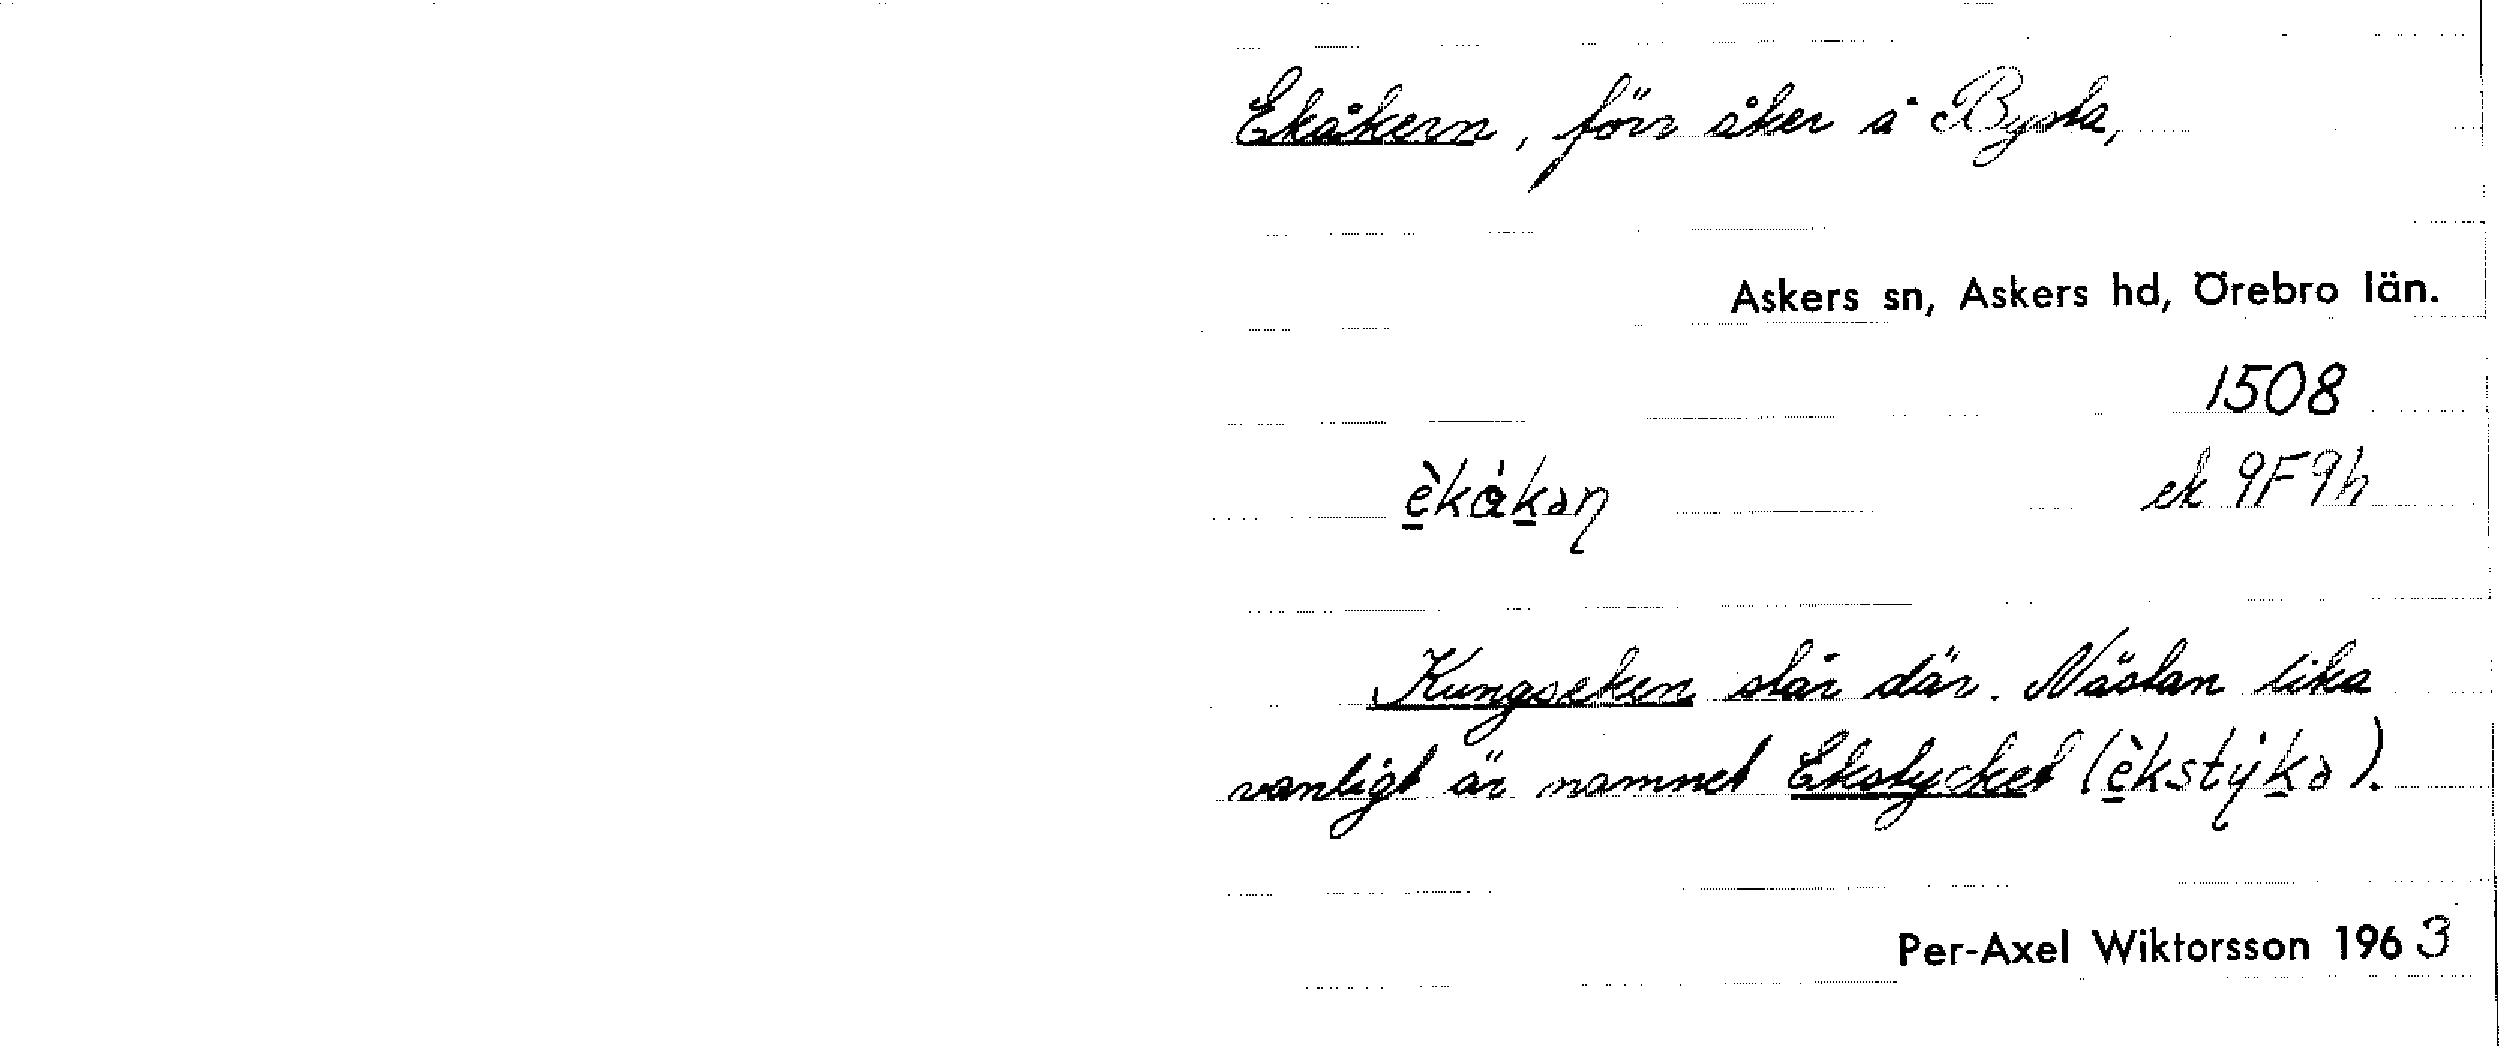 Ekåkern, förr åker å Bysta,
Askers sn, Askers hd, Örebro län.
1508
èkȧkən
ek 9F9h
Kungseken står där. Nästan lika
vanligt är namnet Ekstycket (èkstẏkə).
Per-Axel Wiktorsson 1963